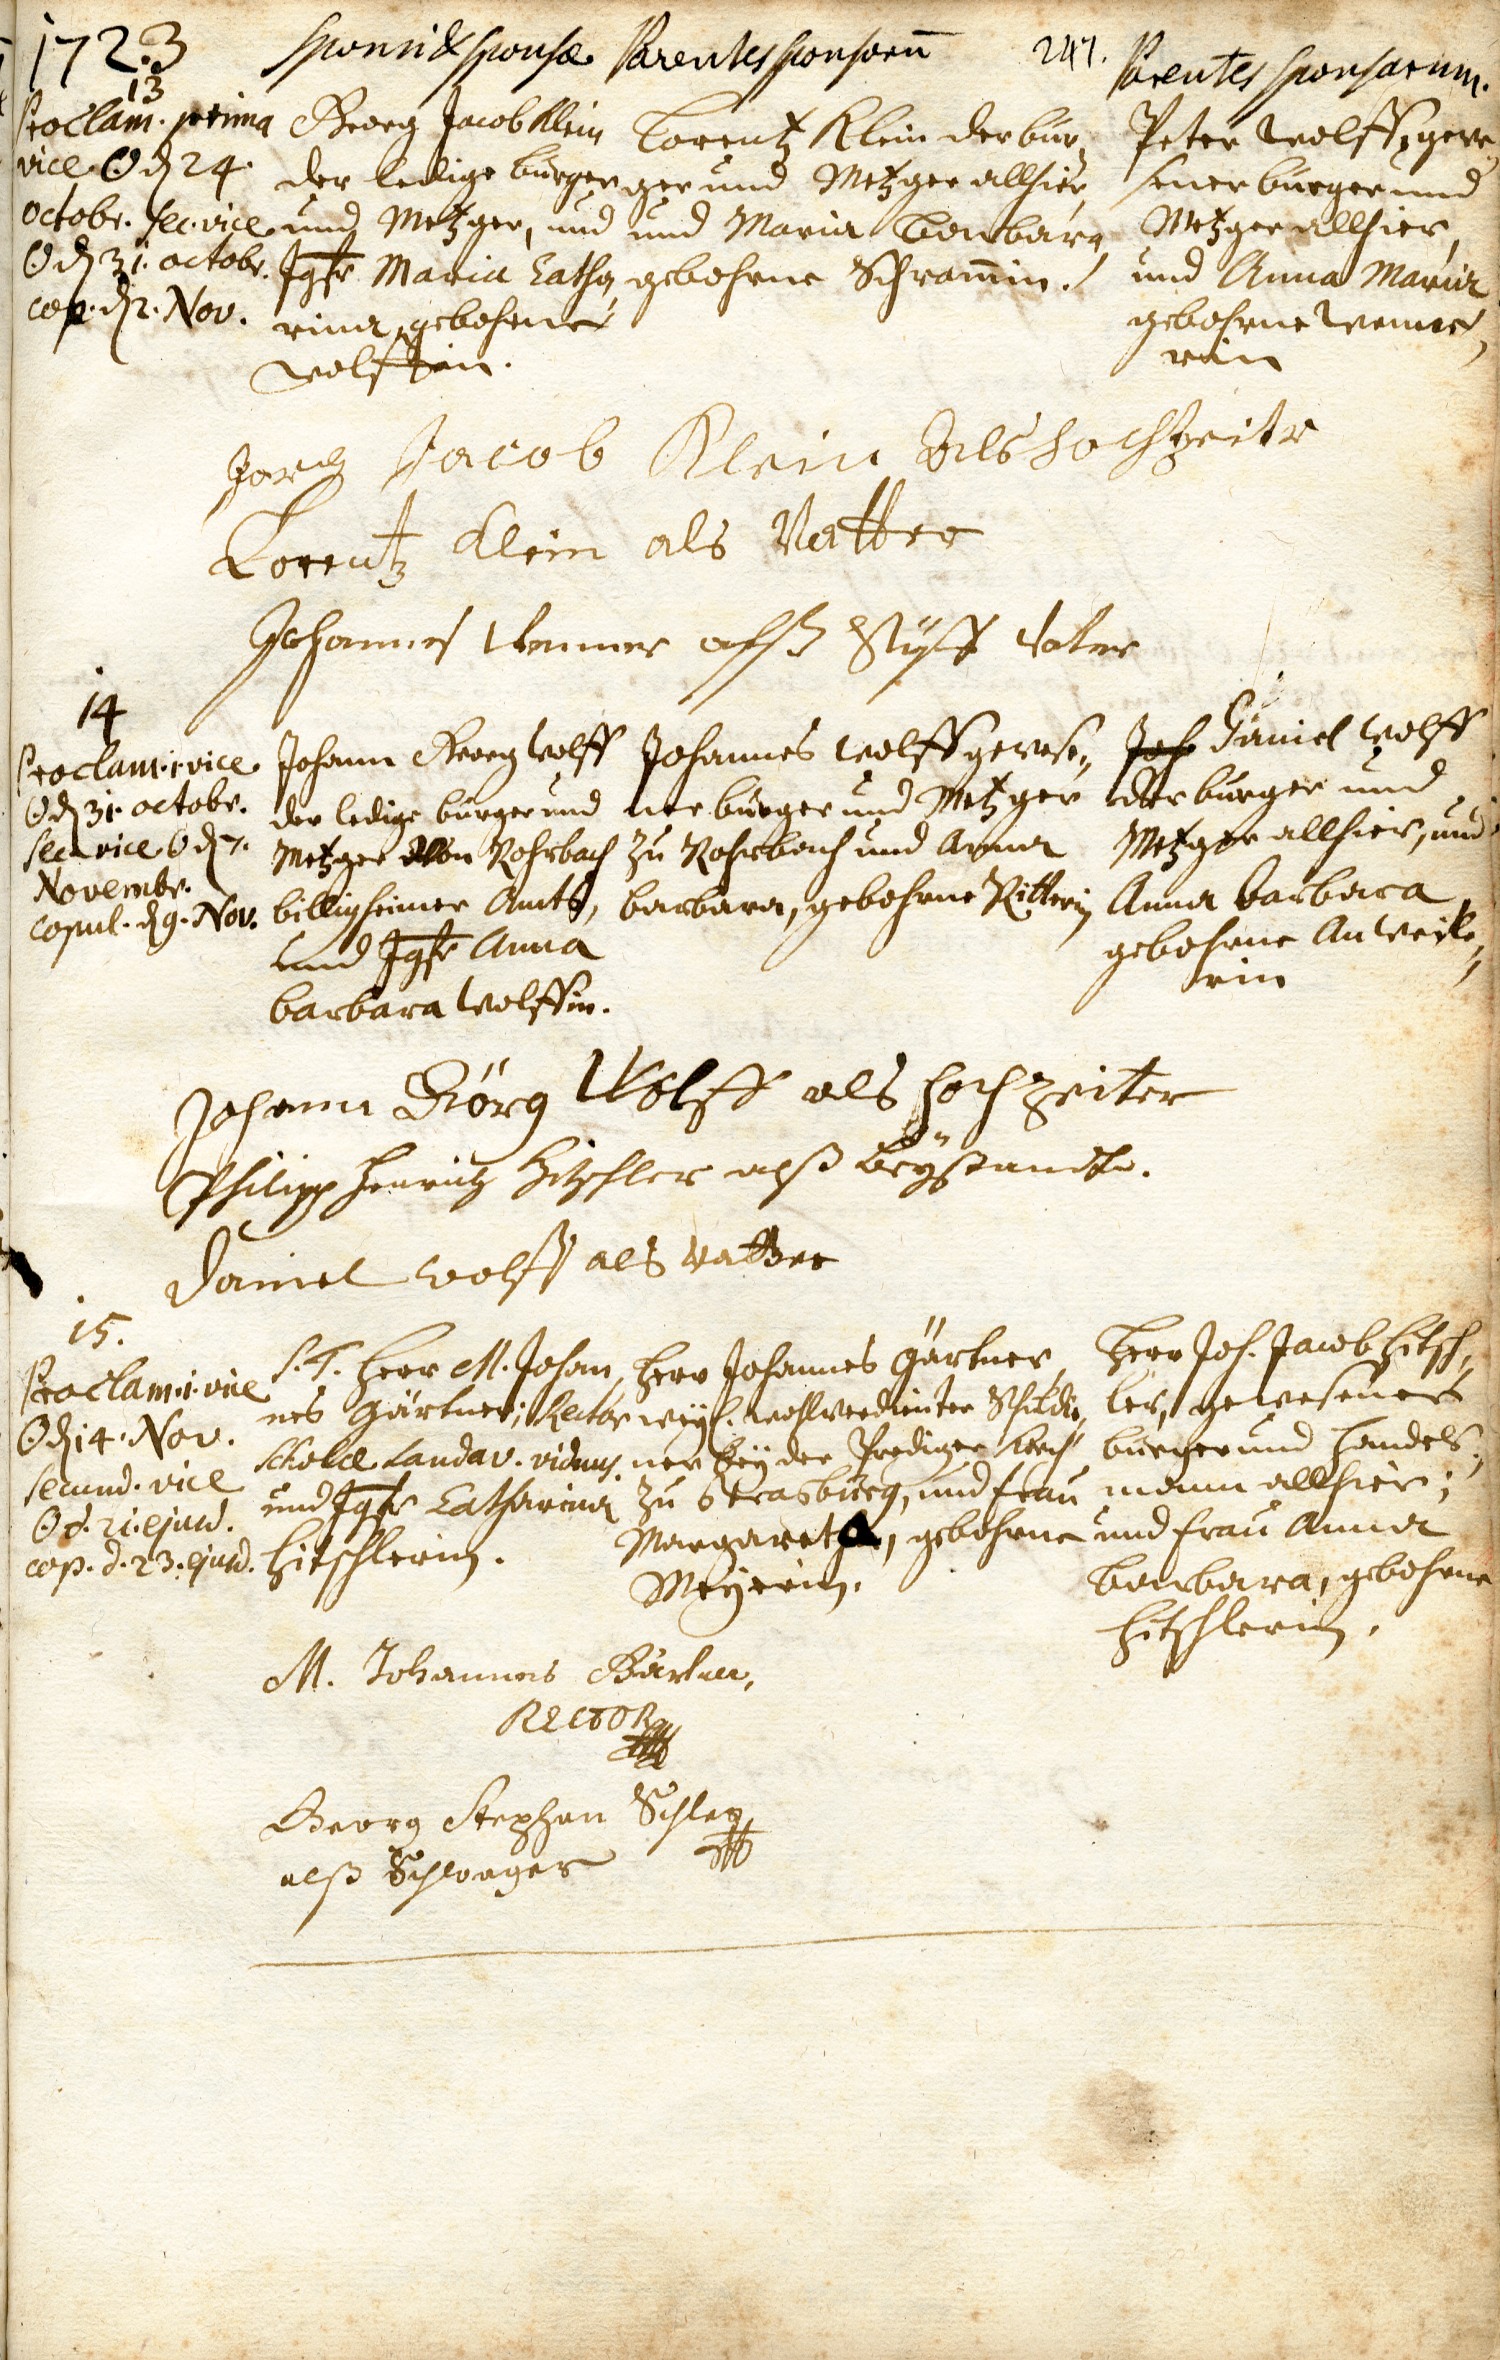 1723
Sponsi & Sponsæ
Parentes Sponsorū
247.
Parentes Sponsarum.
13
Proclam. prima
vice ☉ d 24.
octobr. sec. vice
☉ d 31. octobr.
cop. d 2. Nov.
Georg Jacob Klein
der ledige burger
und Metzger, und
Jgfr Maria Catha„
rina, gebohrne
Wolffin.
Lorentz Klein der bur„
ger und Metzger allhier,
und Maria Barbara,
gebohrne Schram̄in.
Peter Wolff, gewe„
sener burger und
Metzger allhier,
und Anna Maria
gebohrne Wenne„
rin
Jorg Jacob Klein Als hochzeitr
Lorentz Klein als Vatter
Johannes Wenner alß Stüff Vatter
14
Proclam. 1 vice
☉ d 31. octobr.
sec. vice ☉ d 7.
Novembr.
copul. d 9. Nov.
Johann Georg Wolff
der ledige burger und
Metzger von Rohrbach
billigheimer Amts,
und Jgfr Anna
barbara Wolffin.
Johannes Wolff gewese„
ner burger und Metzger
zu Rohrbach und Anna
barbara, gebohrne Ritterin
Joh Daniel Wolff
der burger und
Metzger allhier, und
Anna barbara
gebohrne Anweile„
rin
Johann Görg Wolff als hochzeiter
Philipp Henrich Hitschler alß beÿstandt.
Daniel Wolff als Vatter
15.
Proclam. 1. vice
☉ d 14. Nov.
secund. vice
☉ d. 21. ejusd.
cop. d. 23. ejusd.
S. T. Herr M. Johan„
nes Gärtner, Rector
Scholæ Landav. viduus.
und Jgfr Catharina
Hitschlerin.
Herr Johannes Gärtner,
weÿl. wohlverdienter
ner beÿ der Prediger
zu Strasburg, und frau
Margaretha, gebohrne
Meÿerin.
Herr Joh. Jacob Hitsch„
ler, gewesener
burger und Handels„
mann allhier;
und frau Anna
Barbara, gebohrne
Hitschlerin.
M. Johannes Gärtner,
RECTOR
Georg Stephan Schleg
alß Schwager